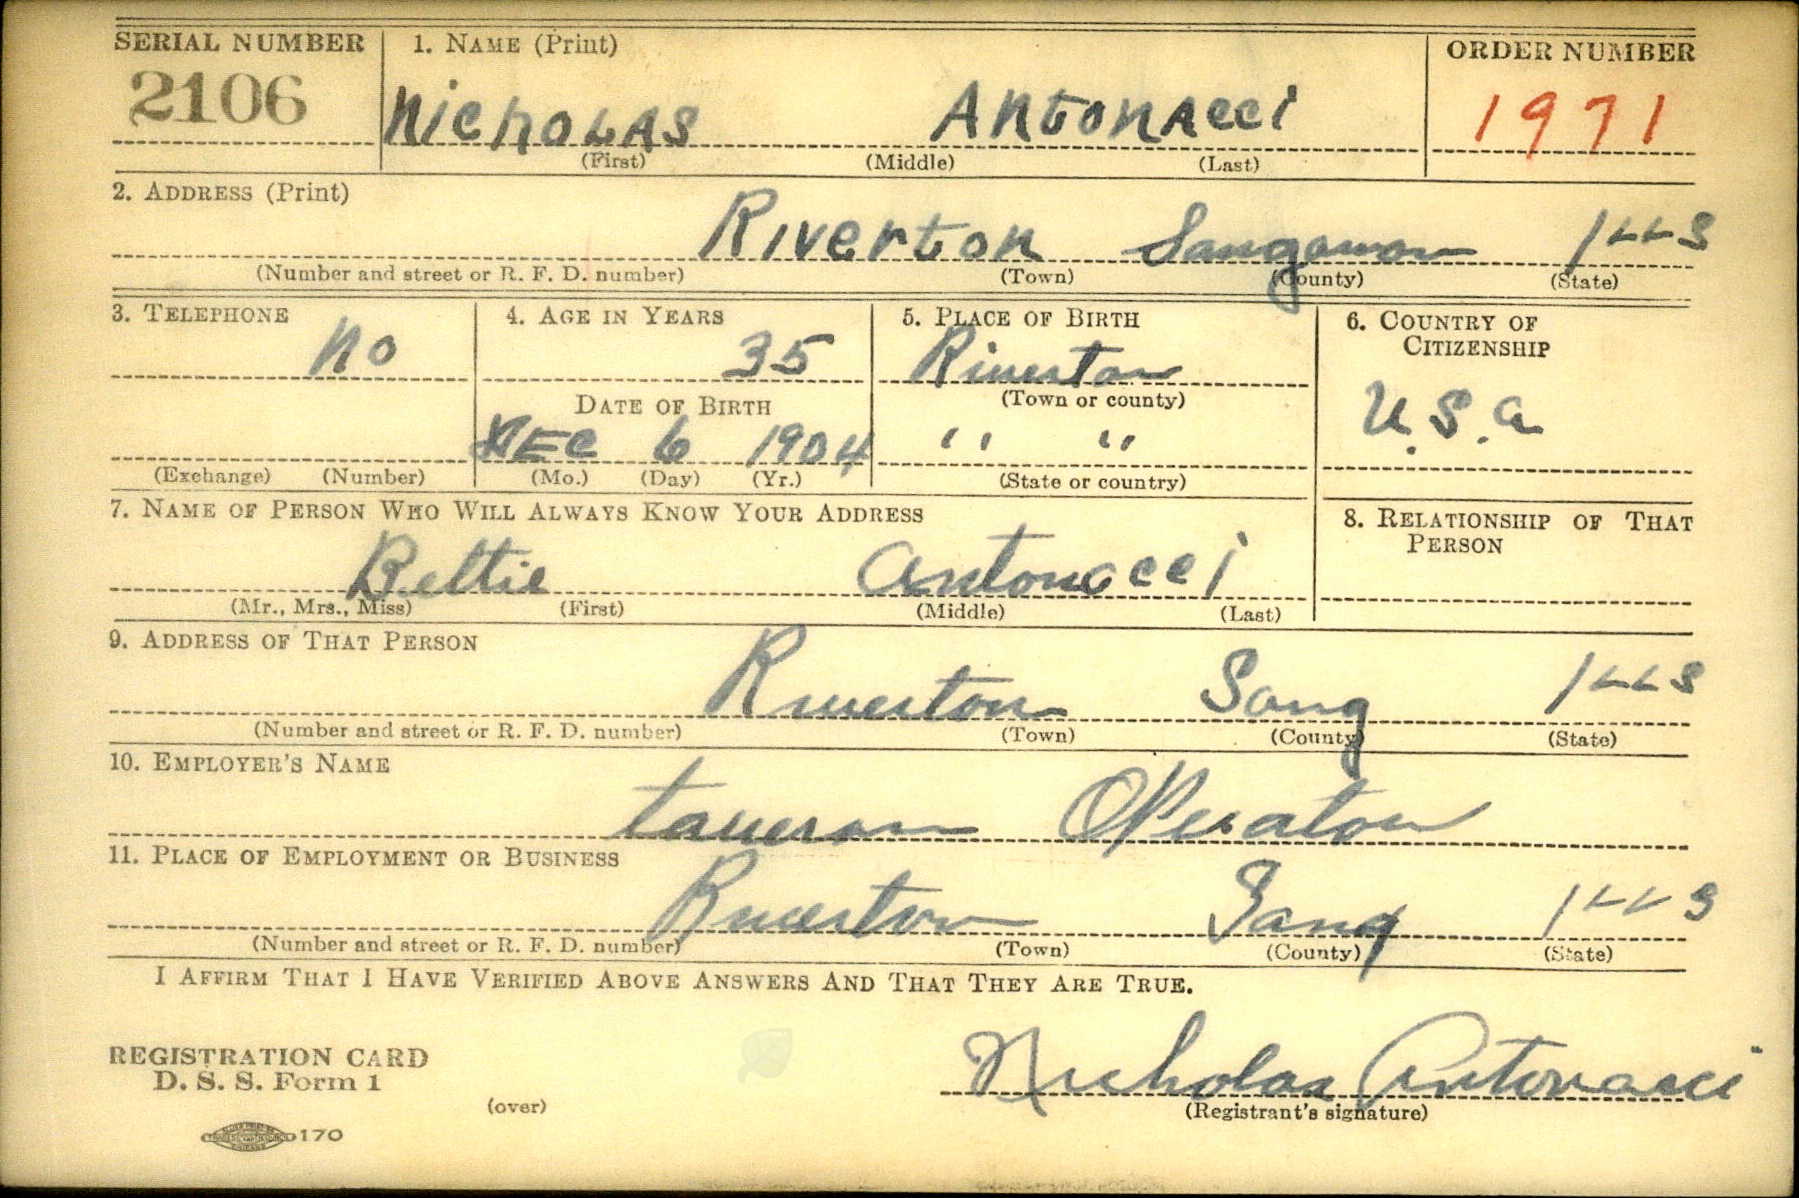 SERIAL NUMBER 1. NAME (Print) ORDER NUMBER
2106 NICHOLAS ANTONACCI 1971
(First) (Middle) (Last)
2. ADDRESS (Print)
RIVERTON Sangamon ILLS
(Number and street or R. F. D. number) (Town) (County) (State)
3. TELEPHONE 4. AGE IN YEARS 5. PLACE OF BIRTH 6. COUNTRY OF
CITIZENSHIP
No 35 Riverton
DATE OF BIRTH (Town or county) U.S.A
DEC 6 1904 " "
(Exchange) (Number) (Mo.) (Day) (Yr.) (State or country)
7. NAME OF PERSON WHO WILL ALWAYS KNOW YOUR ADDRESS 8. RELATIONSHIP OF THAT
PERSON
Bettie Antonacci
(Mr., Mrs., Miss) (First) (Middle) (Last)
9. ADDRESS OF THAT PERSON
Riverton Sang ILLS
(Number and street or R. F. D. number) (Town) (County) (State)
10. EMPLOYER'S NAME
Tavern Operator
11. PLACE OF EMPLOYMENT OR BUSINESS
Riverton Sang ILLS
(Number and street or R. F. D. number) (Town) (County) (State)
I AFFIRM THAT I HAVE VERIFIED ABOVE ANSWERS AND THAT THEY ARE TRUE.
REGISTRATION CARD
D. S. S. Form 1 Nicholas Antonacci
(over) (Registrant's signature)
170